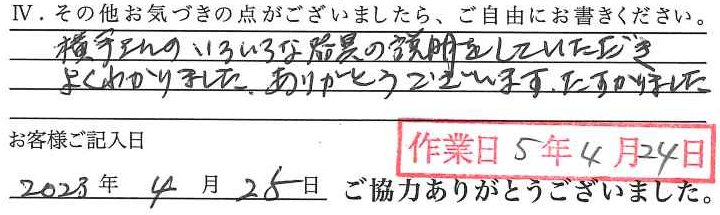 Ⅳ．その他お気づきの点がございましたら、ご自由にお書きください。
横手さんの いろいろな器具の説明をしていただき
よくわかりました、ありがとうございます、たすかりました
お客様ご記入日
作業日 5年4月24日
2023年 4月 25日 ご協力ありがとうございました。